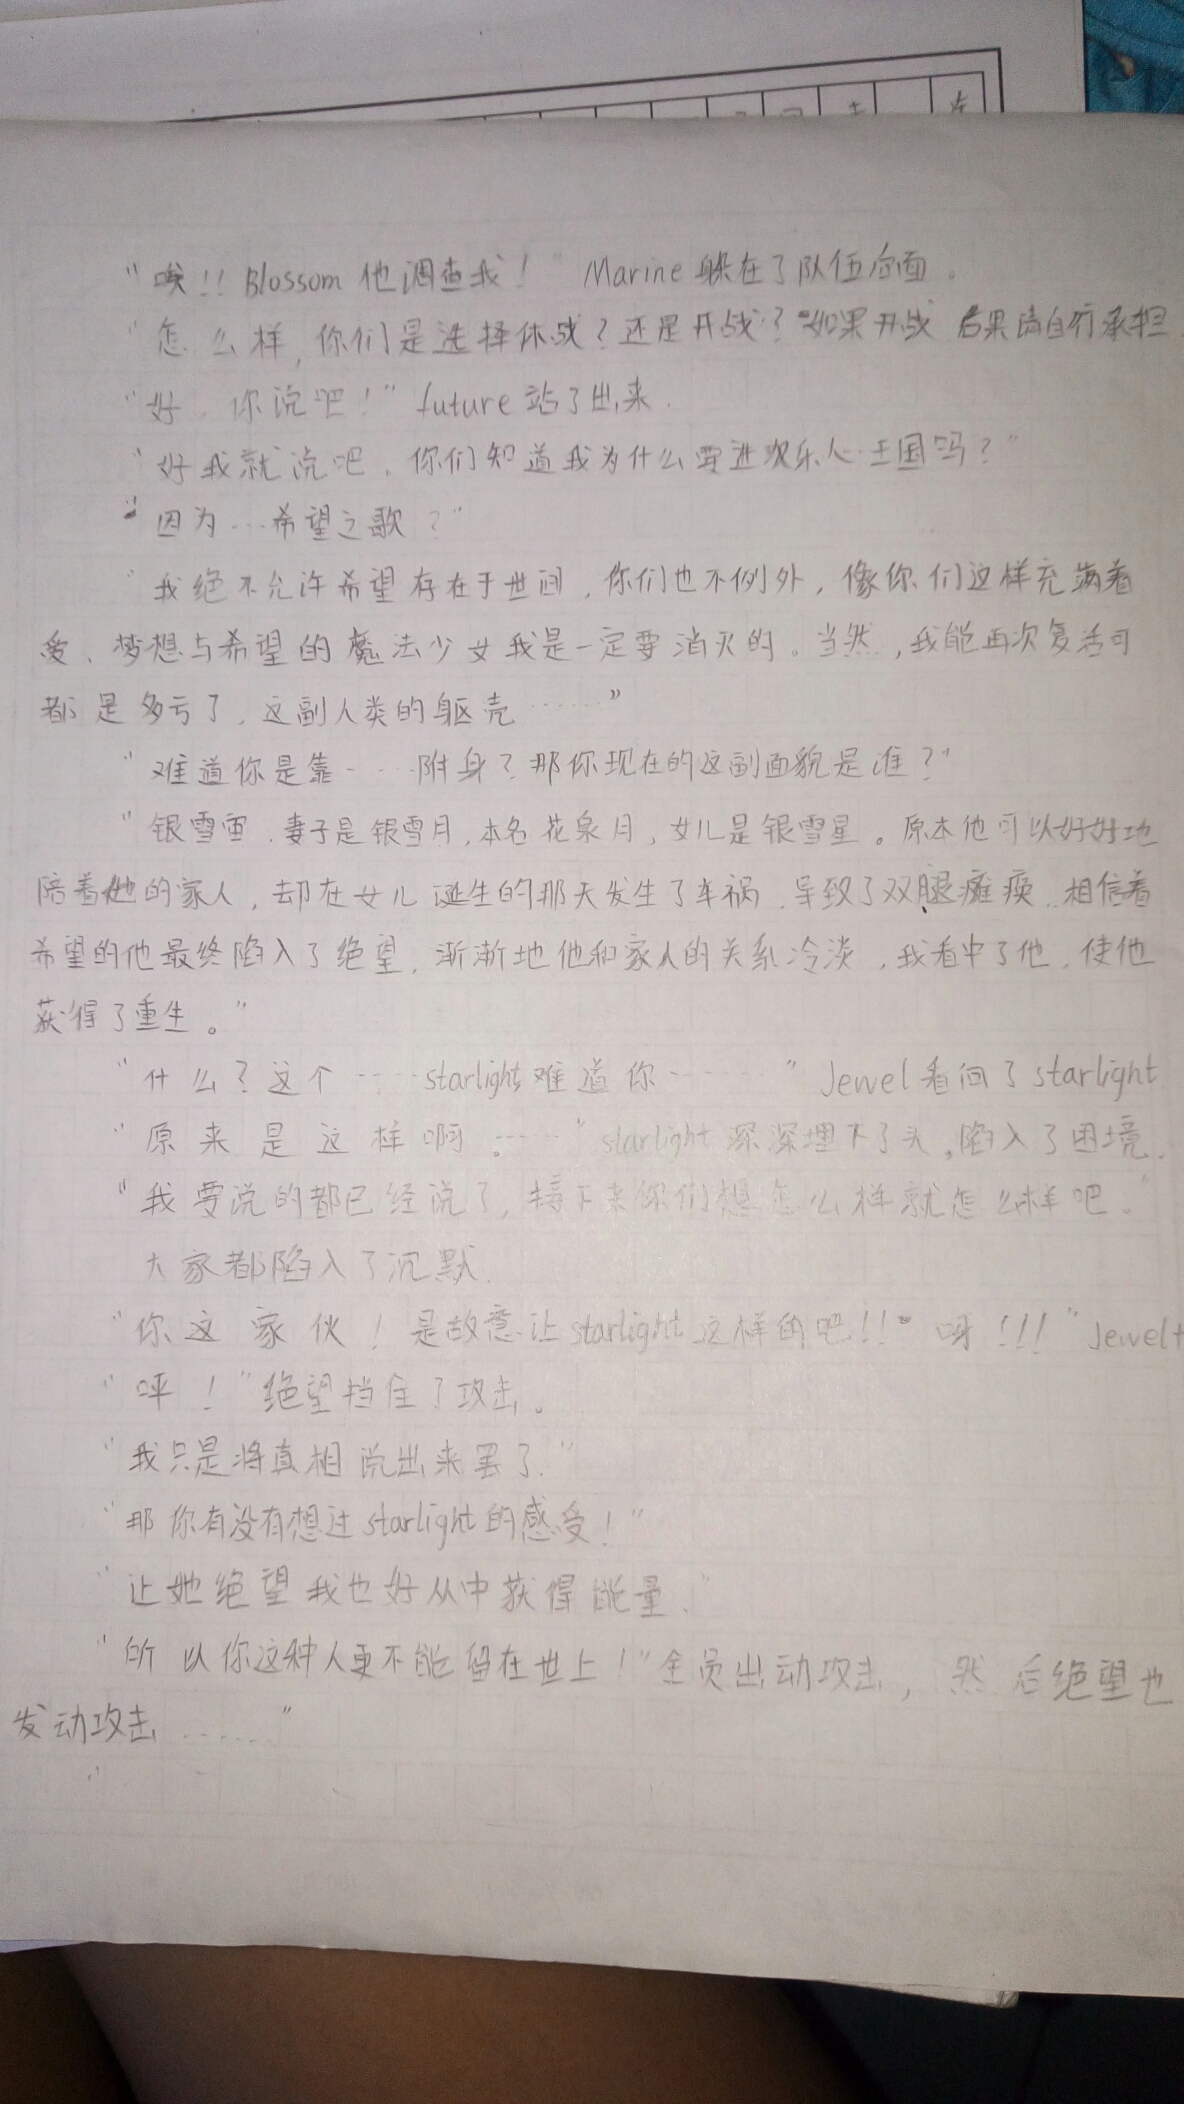 “唉!! Blossom 他调查我！” Marine 躲在了队伍后面。
“怎么样，你们是选择休战？还是开战？如果开战 后果请自行承担
“好，你说吧！”future站了出来.
“好我就说吧，你们知道我为什么要进欢乐心王国吗？”
“因为……希望之歌？”
“我绝不允许希望存在于世间，你们也不例外，像你们这样充满着
爱、梦想与希望的魔法少女我是一定要消灭的。当然，我能再次复活可
都是多亏了，这副人类的躯壳……”
“难道你是靠……附身？那你现在的这副面貌是谁？”
“银雪宙，妻子是银雪月，本名花泉月，女儿是银雪星。原本他可以好好地
陪着他的家人，却在女儿诞生的那天发生了车祸，导致了双腿瘫痪，相信着
希望的他最终陷入了绝望，渐渐地他和家人的关系冷淡，我看中了他，使他
获得了重生。”
“什么？这个……starlight难道你………”Jewel看向了starlight
“原来是这样啊。……”starlight深深埋下了头，陷入了困境.
“我要说的都已经说了，接下来你们想怎么样就怎么样吧。”
大家都陷入了沉默.
“你这家伙！是故意让starlight这样的吧!!”呀!!!”Jewel
“呯！”绝望挡住了攻击。
“我只是将真相说出来罢了.”
“那你有没有想过starlight的感受！”
“让她绝望我也好从中获得能量.”
“所以你这种人更不能留在世上！”全员出动攻击，然后绝望也
发动攻击……”